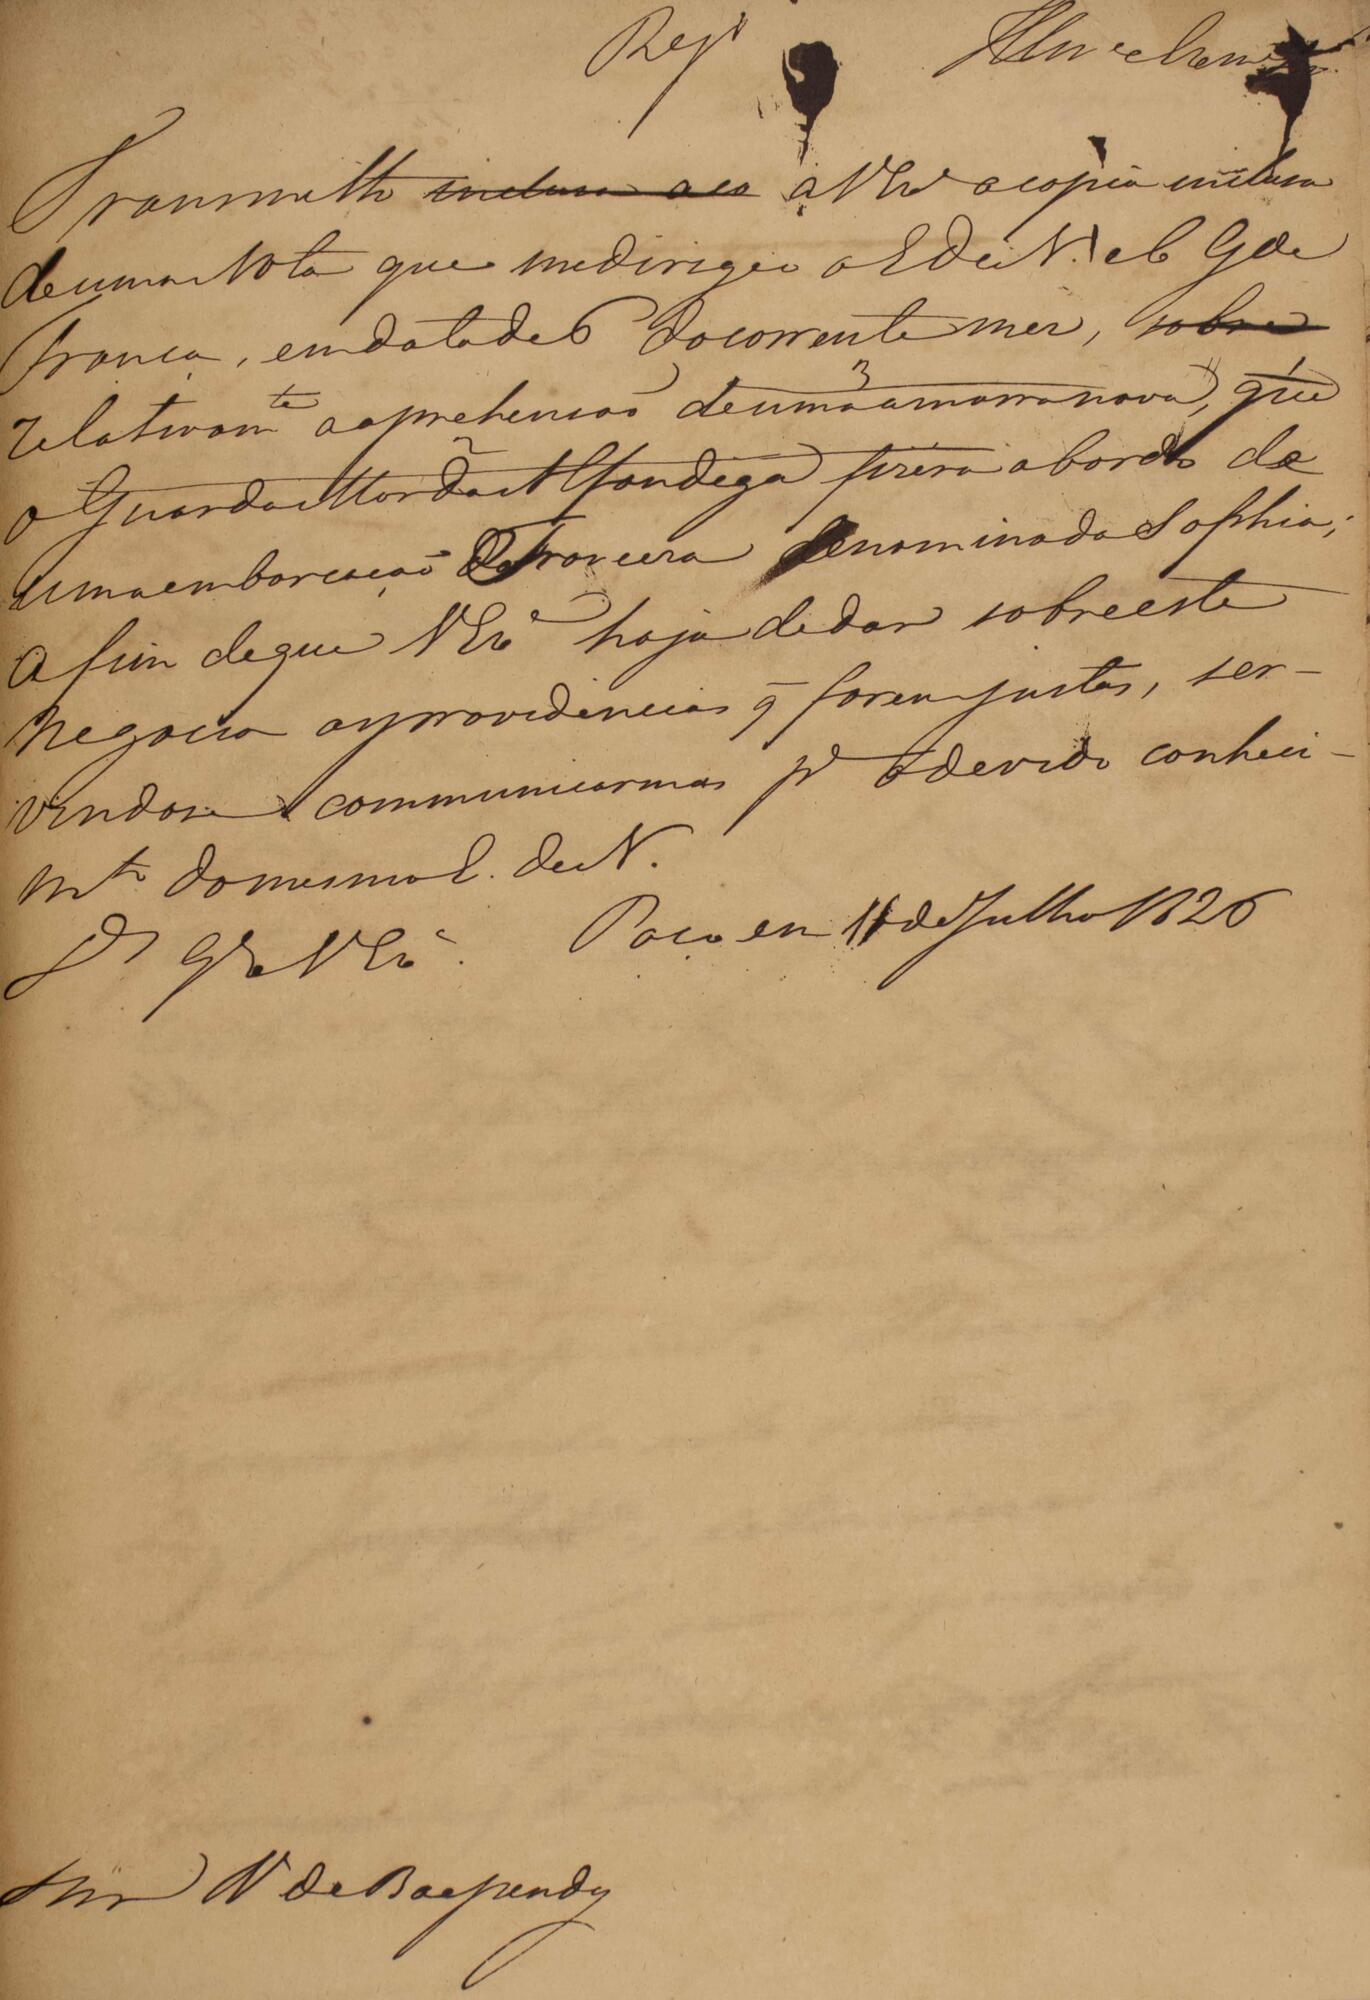 Reg.º Illm.º e Exm.º Snr.
Transmitto inclusa a co a V Ex.ª a copia inclusa
de uma Nota que me dirigio o E. de N. e C. G. de
França, em data de 6 do corrente mez, sobre
relativam.te a aprehensaõ de uma amarra nova, que
o Guarda Mor da Alfandega fizera a bordo de
uma embarcaçaõ Franceza denominada Sophia;
a fim de que V Ex.ª haja de dar sobre este
negocio as providencias q̃ forem justas, ser-
vindo-se communicarmas p.ª o devido conheci-
m.to do mesmo E. de N.
D.s G.e a V Ex.ª. Paço em 11 de Julho 1826
Snr V de Baependy